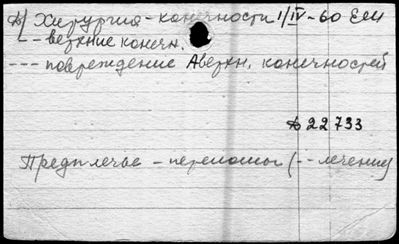 Д/ Хирургия - конечности 1/IV-60 Еем
- - верхние конечн.
- - - повреждение Аверхн. конечностей
Д 22733
Предплечье - переломы (- - лечение)